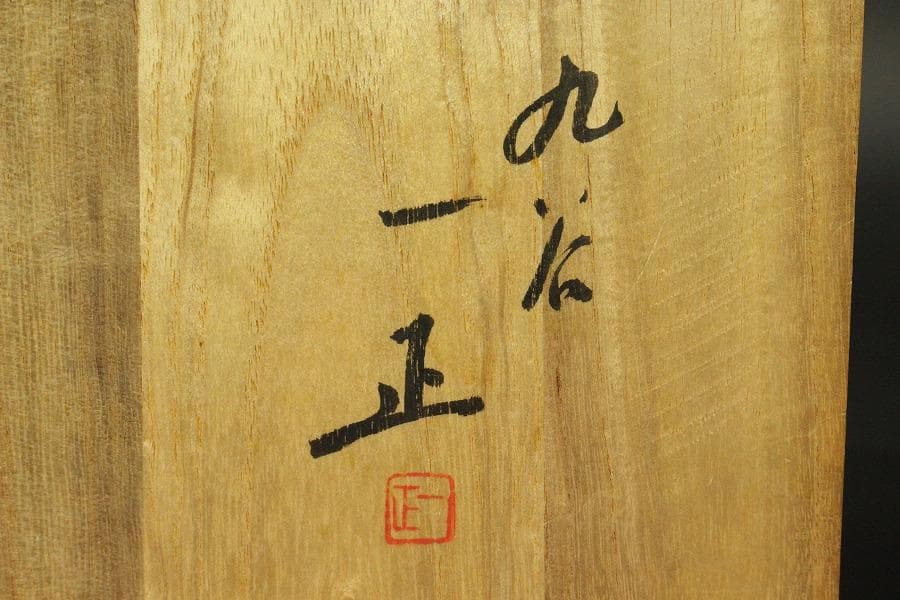 九谷
一正
一正